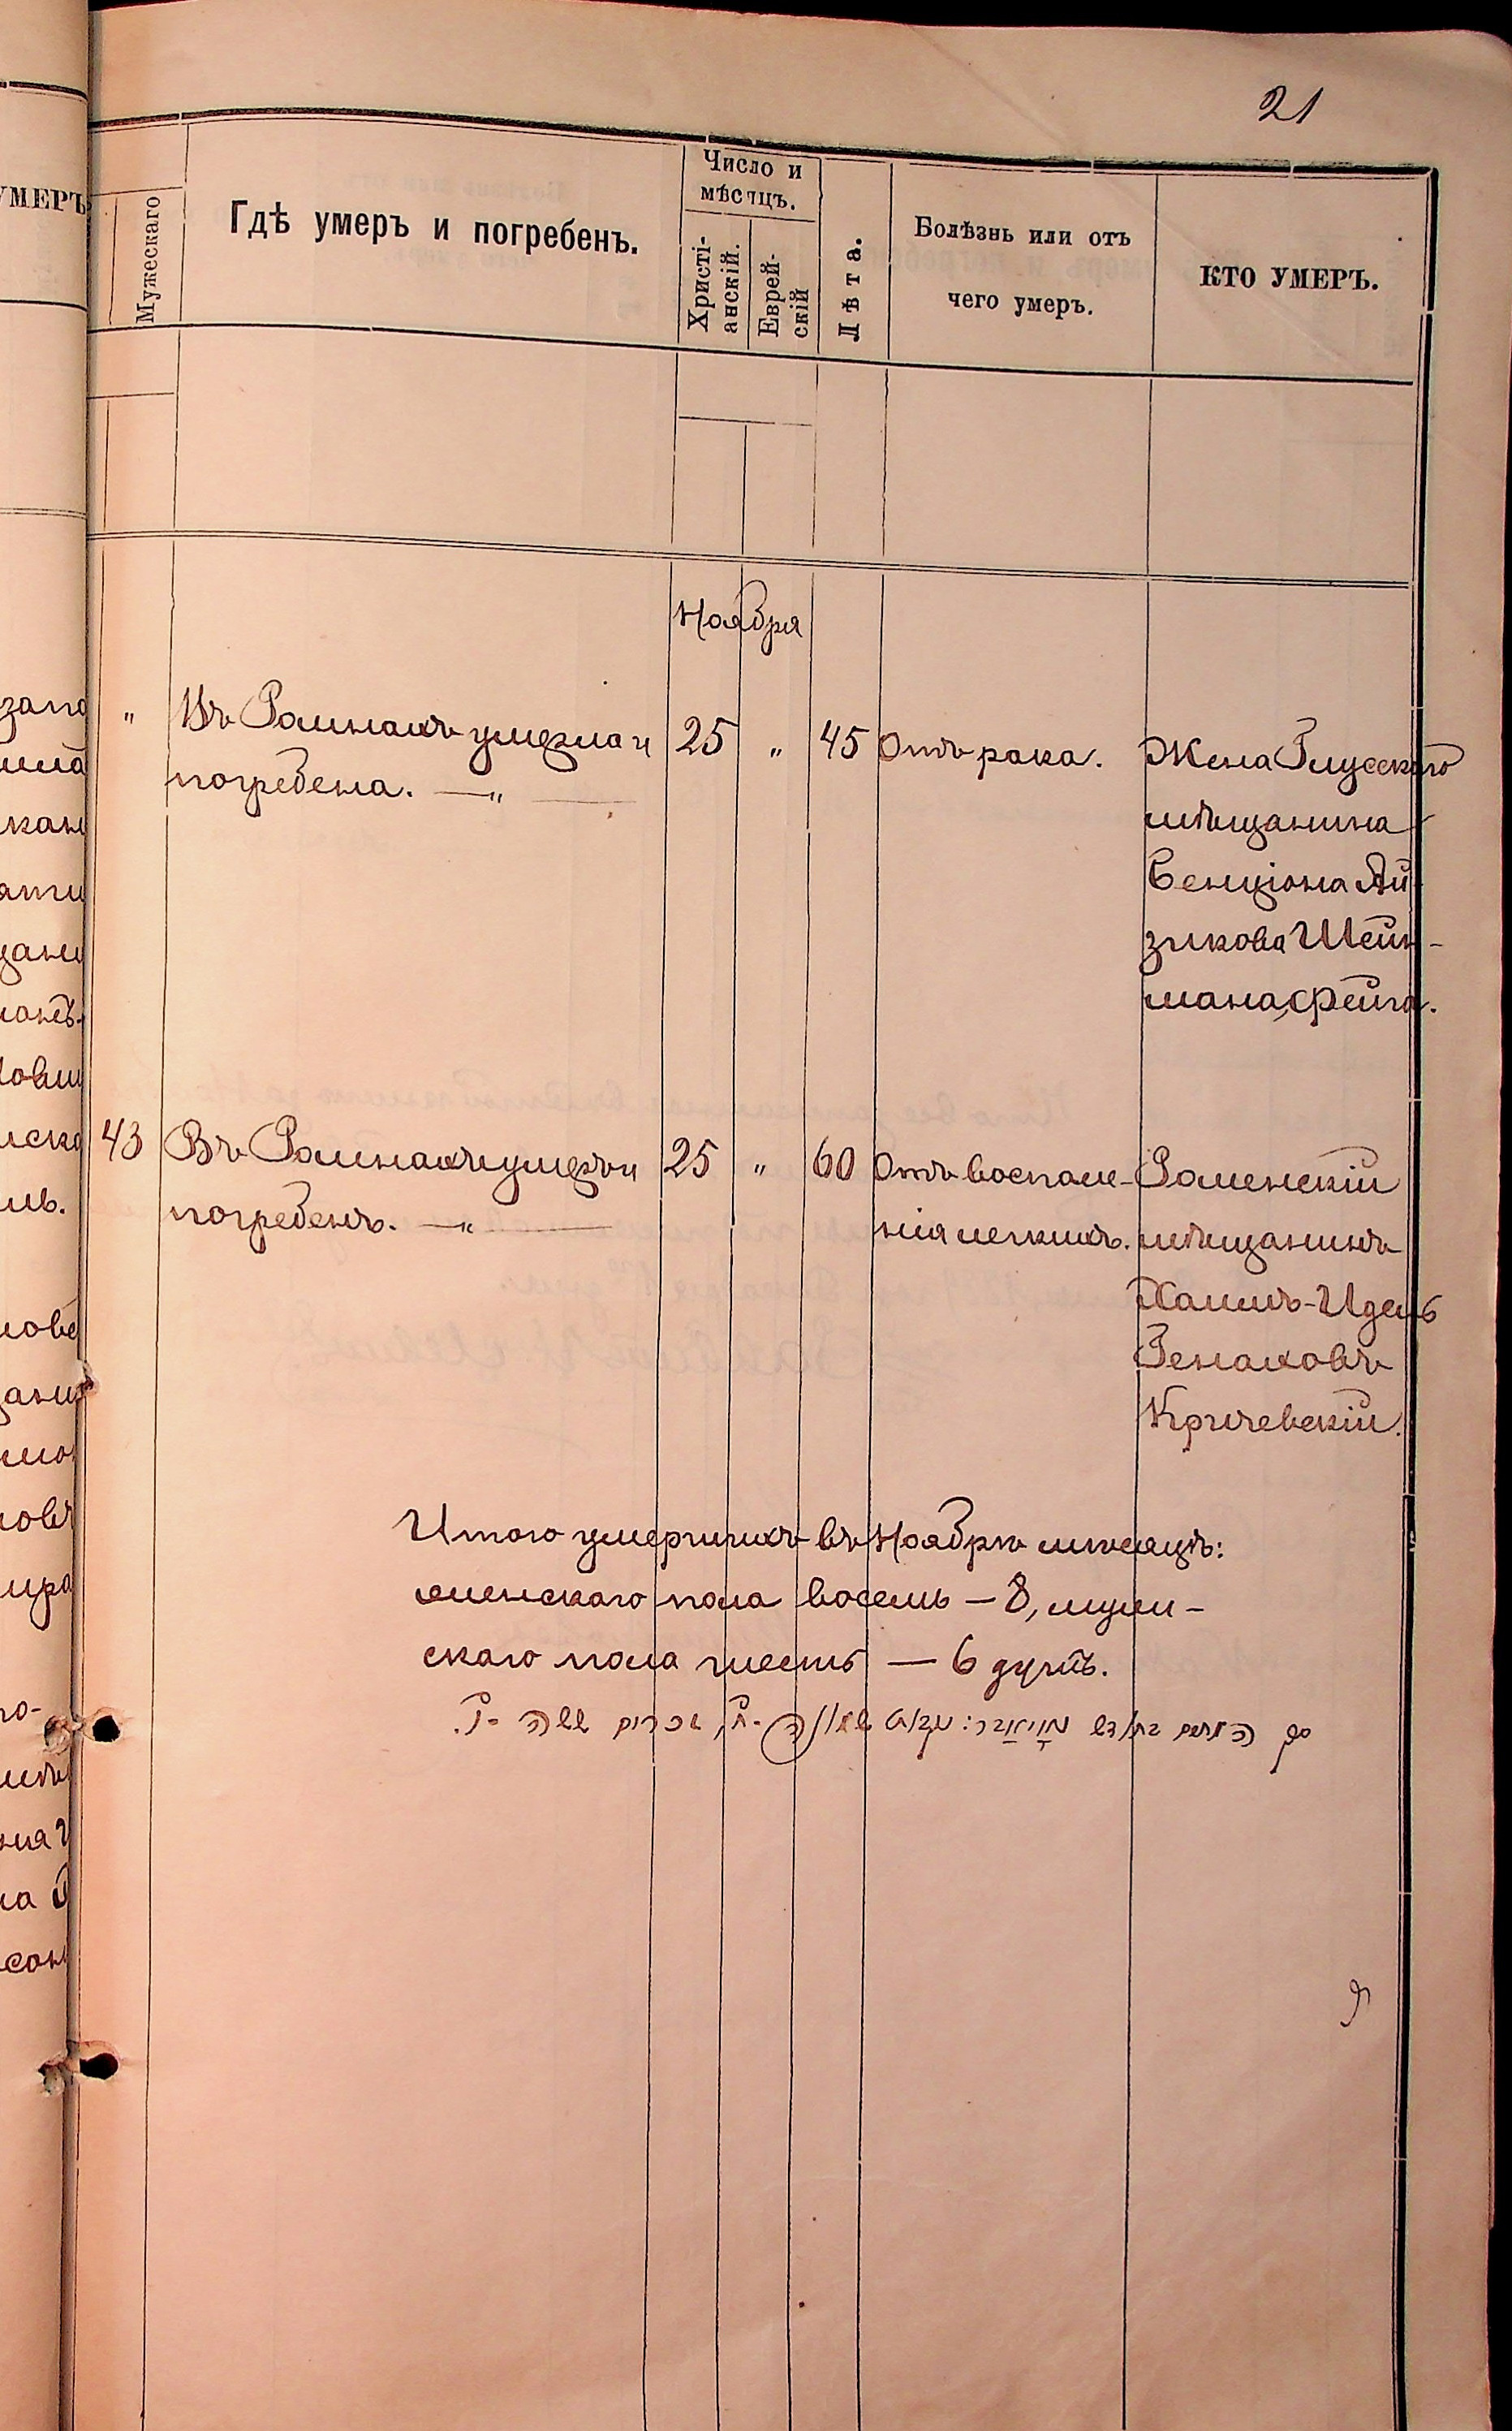 21
УМЕРЪ
Мужескаго
Гдѣ умеръ и погребенъ.
Число и
мѣсяцъ.
Христі-
анскій.
Еврей-
скій
Лѣта.
Болѣзнь или отъ
чего умеръ.
КТО УМЕРЪ.
Ноября
" Въ Ромнахъ умерла и 25 " 45 Отъ рака. Жена Глусскаго
погребена. — " — мѣщанина
Бенціона Ай-
зикова Шейн-
мана, Фейга.
43 Въ Ромнахъ умеръ и 25 " 60 Отъ воспале- Роменскій
погребенъ. — " — нія легкихъ. мѣщанинъ
Хаимъ-Идель
Генаховъ
Кричевскій.
Итого умершихъ въ Ноябрѣ мѣсяцѣ:
женскаго пола восемь — 8, муж-
скаго пола шесть — 6 душъ.